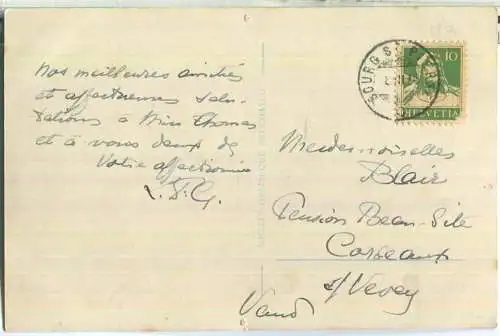 Nos meilleures amitiés
et affectueuses salu-
tations à Miss Thomas
et à vous deux de
Votre affectionnée
L. F. G.
BOURG ST PIERRE
10
HELVETIA
Mesdemoiselles
Blair
Pension Beau-Site
Corseaux
s/ Vevey
Vaud